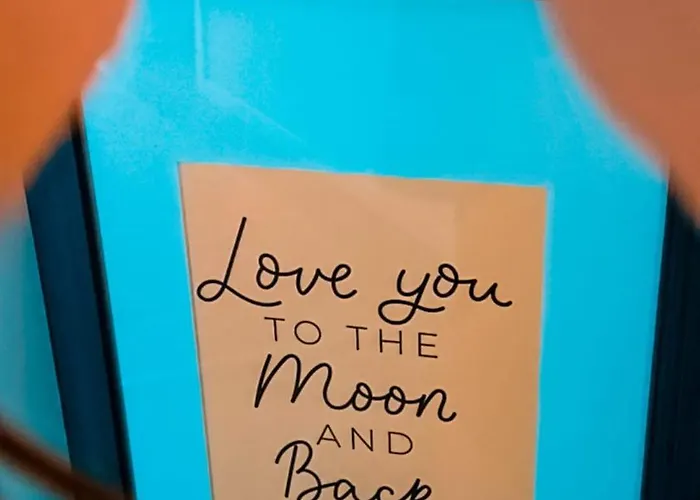 Love you
TO THE
Moon
AND
Back